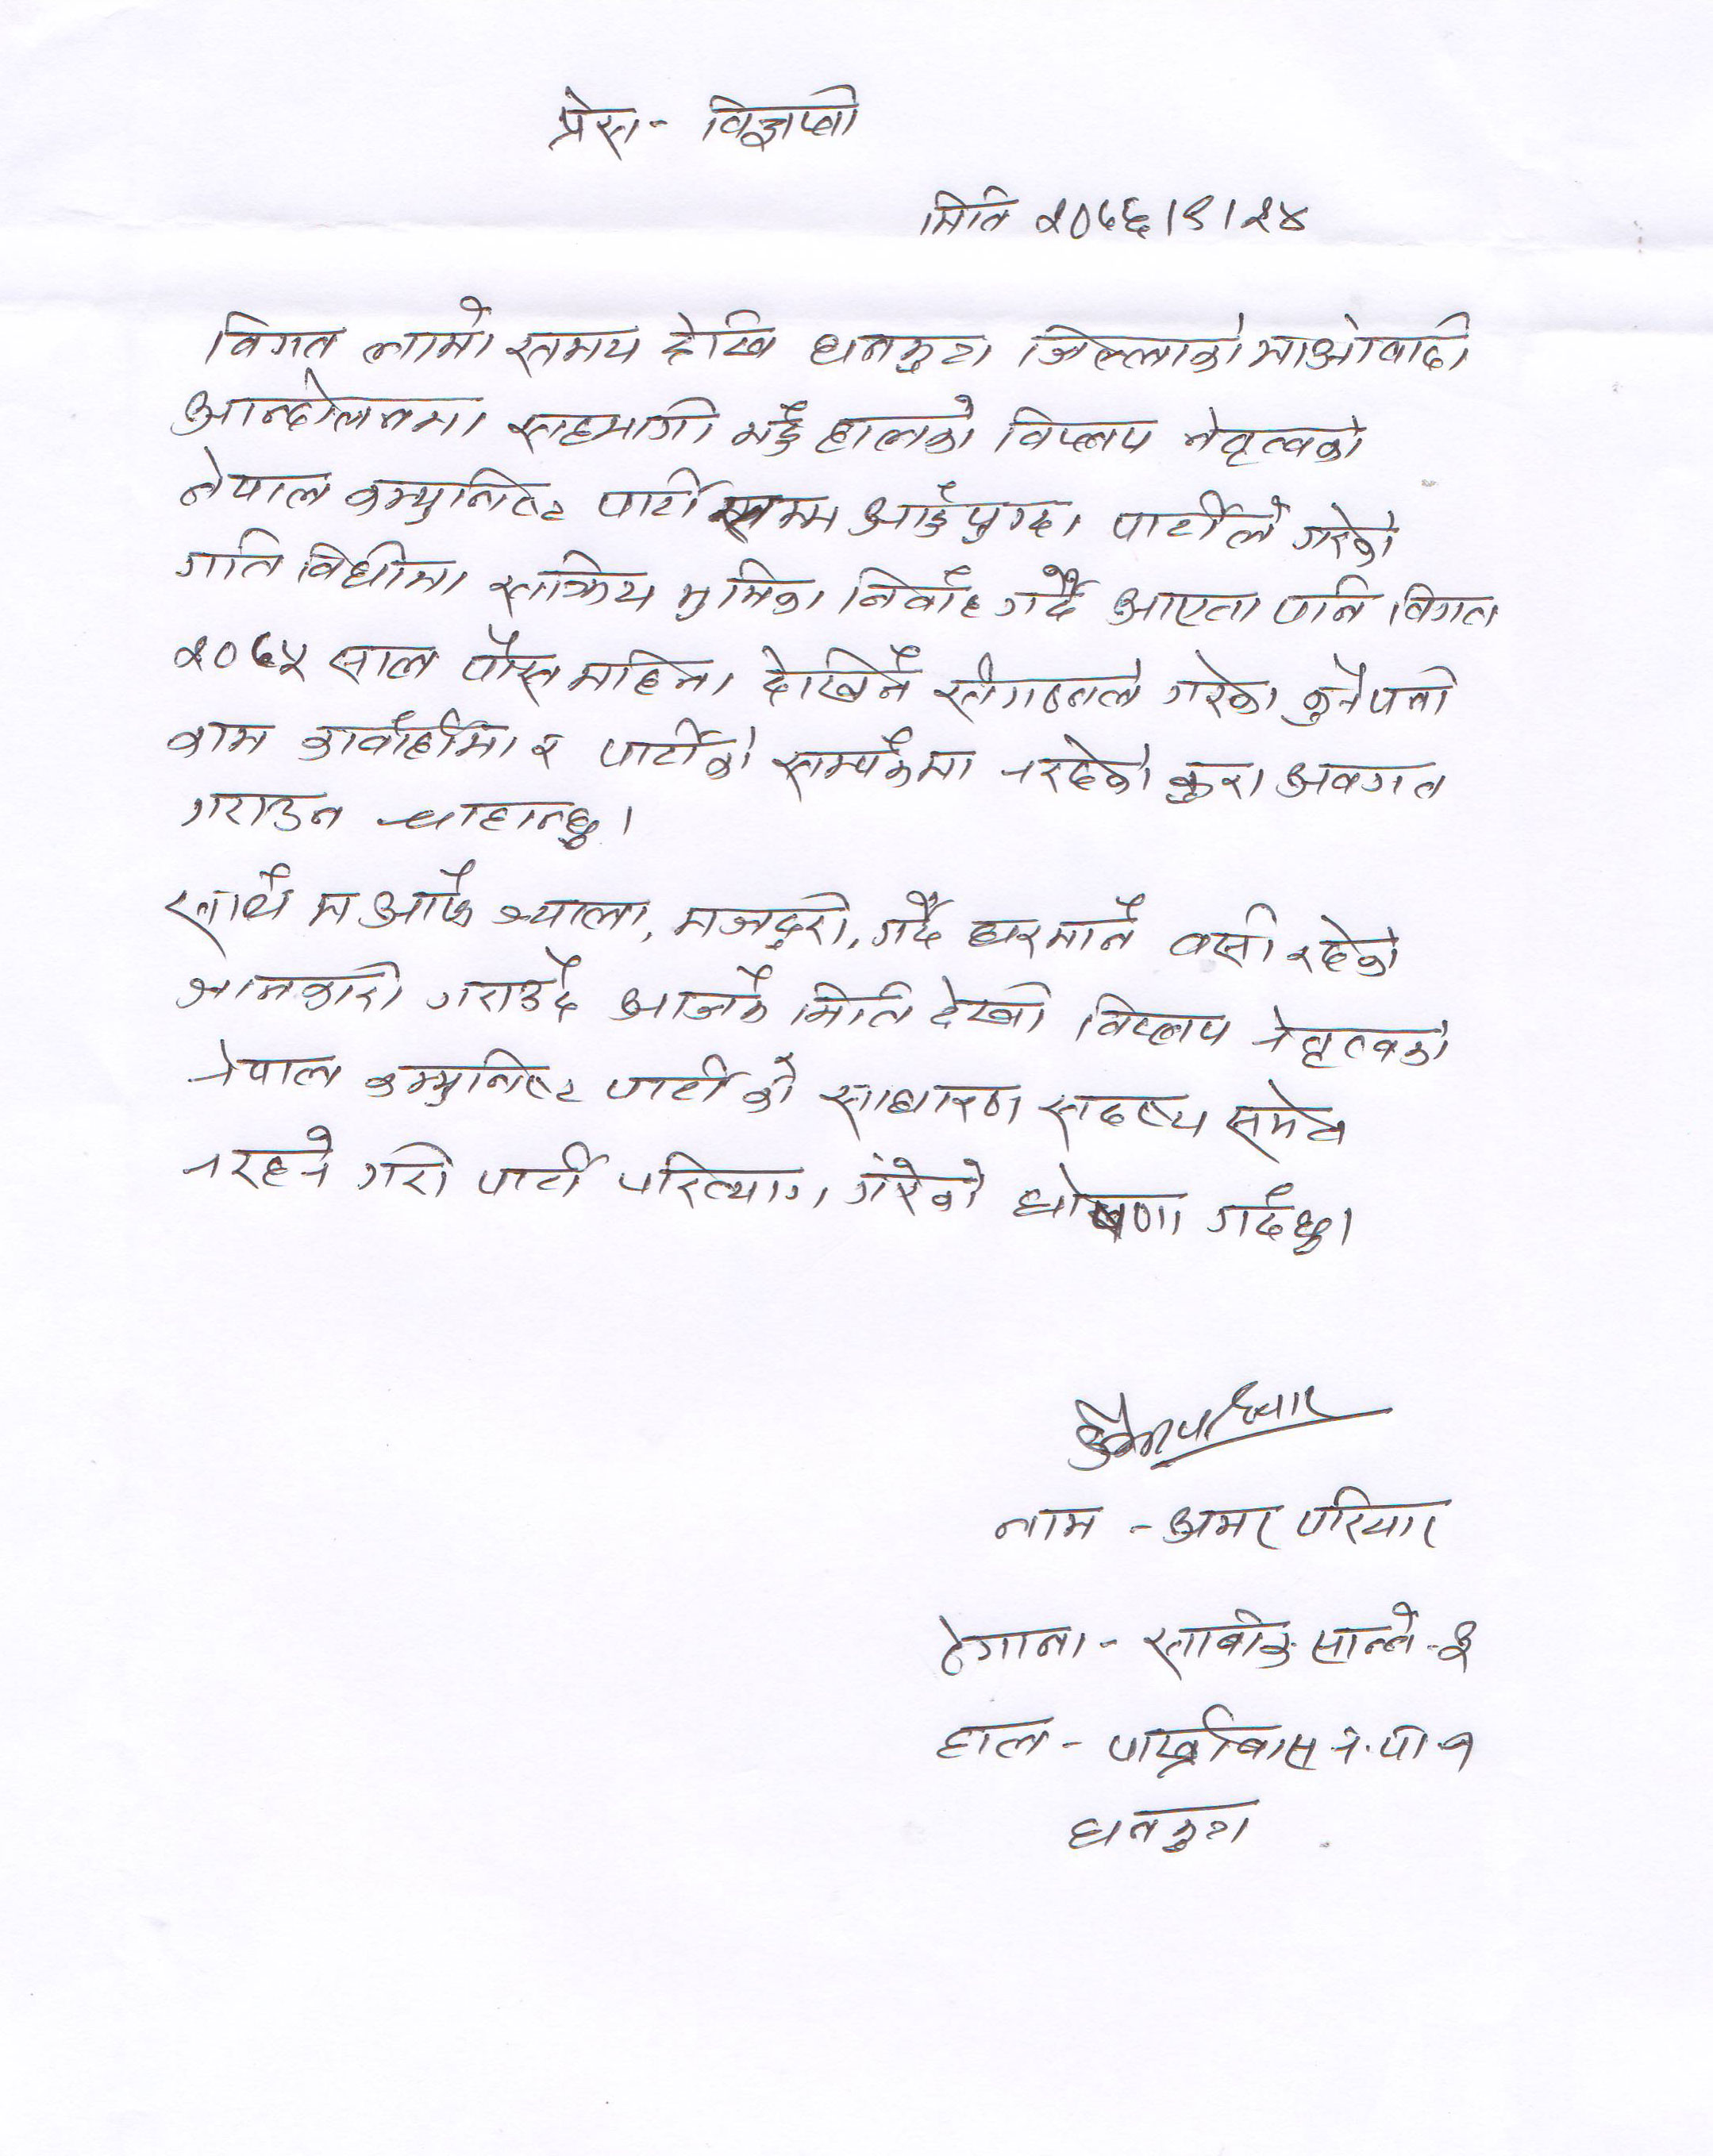 प्रेस - विज्ञप्ती
मिति २०७६।९।२४
विगत लामो समय देखि धनकुटा जिल्लाको माओवादी
आन्दोलनमा सहभागी भई हालको विप्लप नेतृत्वको
नेपाल कम्युनिष्ट पार्टी सम्म आई पुग्दा पार्टीले गरेको
गति विधीमा सक्रिय भुमिका निर्वाह गर्दै आएता पनि विगत
२०७५ साल पौस महिना देखिनै संगठनले गरेका कुनै पनी
काम कार्वाहीमा र पार्टीको सम्पर्कमा नरहेको कुरा अवगत
गराउन चाहान्छु।
साथै म आफै ज्याला, मजदुरी, गर्दै घरमानै वसी रहेको
जानकारी गराउदै आजकै मिति देखी विप्लप नेतृत्वको
नेपाल कम्युनिष्ट पार्टीको साधारण सदष्य समेत
नरहने गरी पार्टी परित्याग गरेको घोषणा गर्दछु।
नाम - अमर परियार
ठेगाना - साबीक सान्ने - ३
हाल - पाख्रीबास न. पा १
धनकुटा